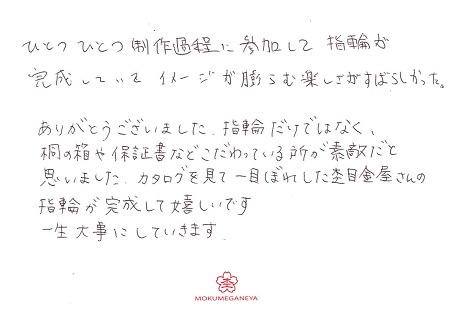 ひとつ ひとつ 制作過程に参加して 指輪が
完成していて イメージが膨らむ楽しさがすばらしかった。
ありがとうございました。指輪だけではなく、
桐の箱や保証書などこだわっている所が素敵だと
思いました。カタログを見て一目ぼれした杢目金屋さんの
指輪が完成して嬉しいです
一生大事にしていきます。
MOKUMEGANEYA